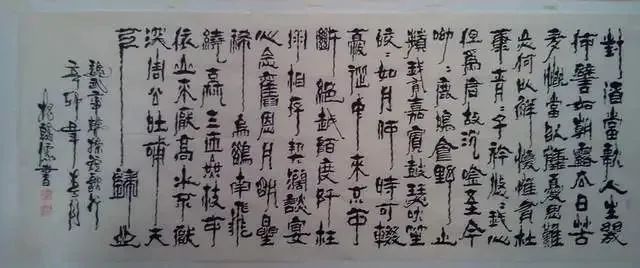 對酒當歌人生幾
何譬如朝露去日苦
多慨當以慷憂思難
忘何以解憂惟有杜
康青〻子衿悠〻我心
但爲君故沉唫至今
呦〻鹿鳴食野之
蘋我有嘉賓鼓瑟吹笙
皎〻如月何時可輟
憂從中來不可
斷絕越陌度阡枉
用相存契闊談宴
心念舊恩月明星
稀烏鵲南飛
繞樹三匝無枝可
依山不厭高水不厭
深周公吐哺天
下歸心
魏武帝曹操短歌行
辛卯年春月
書